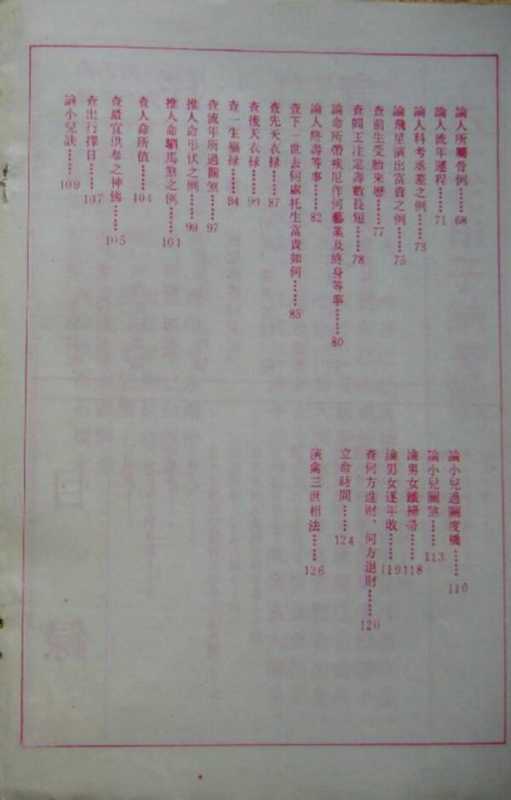 論人所屬骨例……68
論人流年運程……71
論人科考丞差之例……73
論飛星演出富貴之例……75
查前生受胎來歷……77
查閻王注定壽數長短……78
論命所帶疾厄作何藝業及終身等事……80
論人終壽等事……82
查下一世去何處托生富貴如何……85
查先天衣祿……87
查後天衣祿……
查一生福祿……94
查流年所遇關煞……97
推人命 之例……99
推人命 馬煞之例……101
查人命所值……104
查最宜供奉之神佛……105
查出行擇日……107
論小兒訣……109
論小兒過關度橋……110
論小兒關煞……113
論男女鐵掃帚……118
論男女逐年敗……119
查何方進財、何方退財……120
立命時間……124
演禽三世相法……126
目
錄